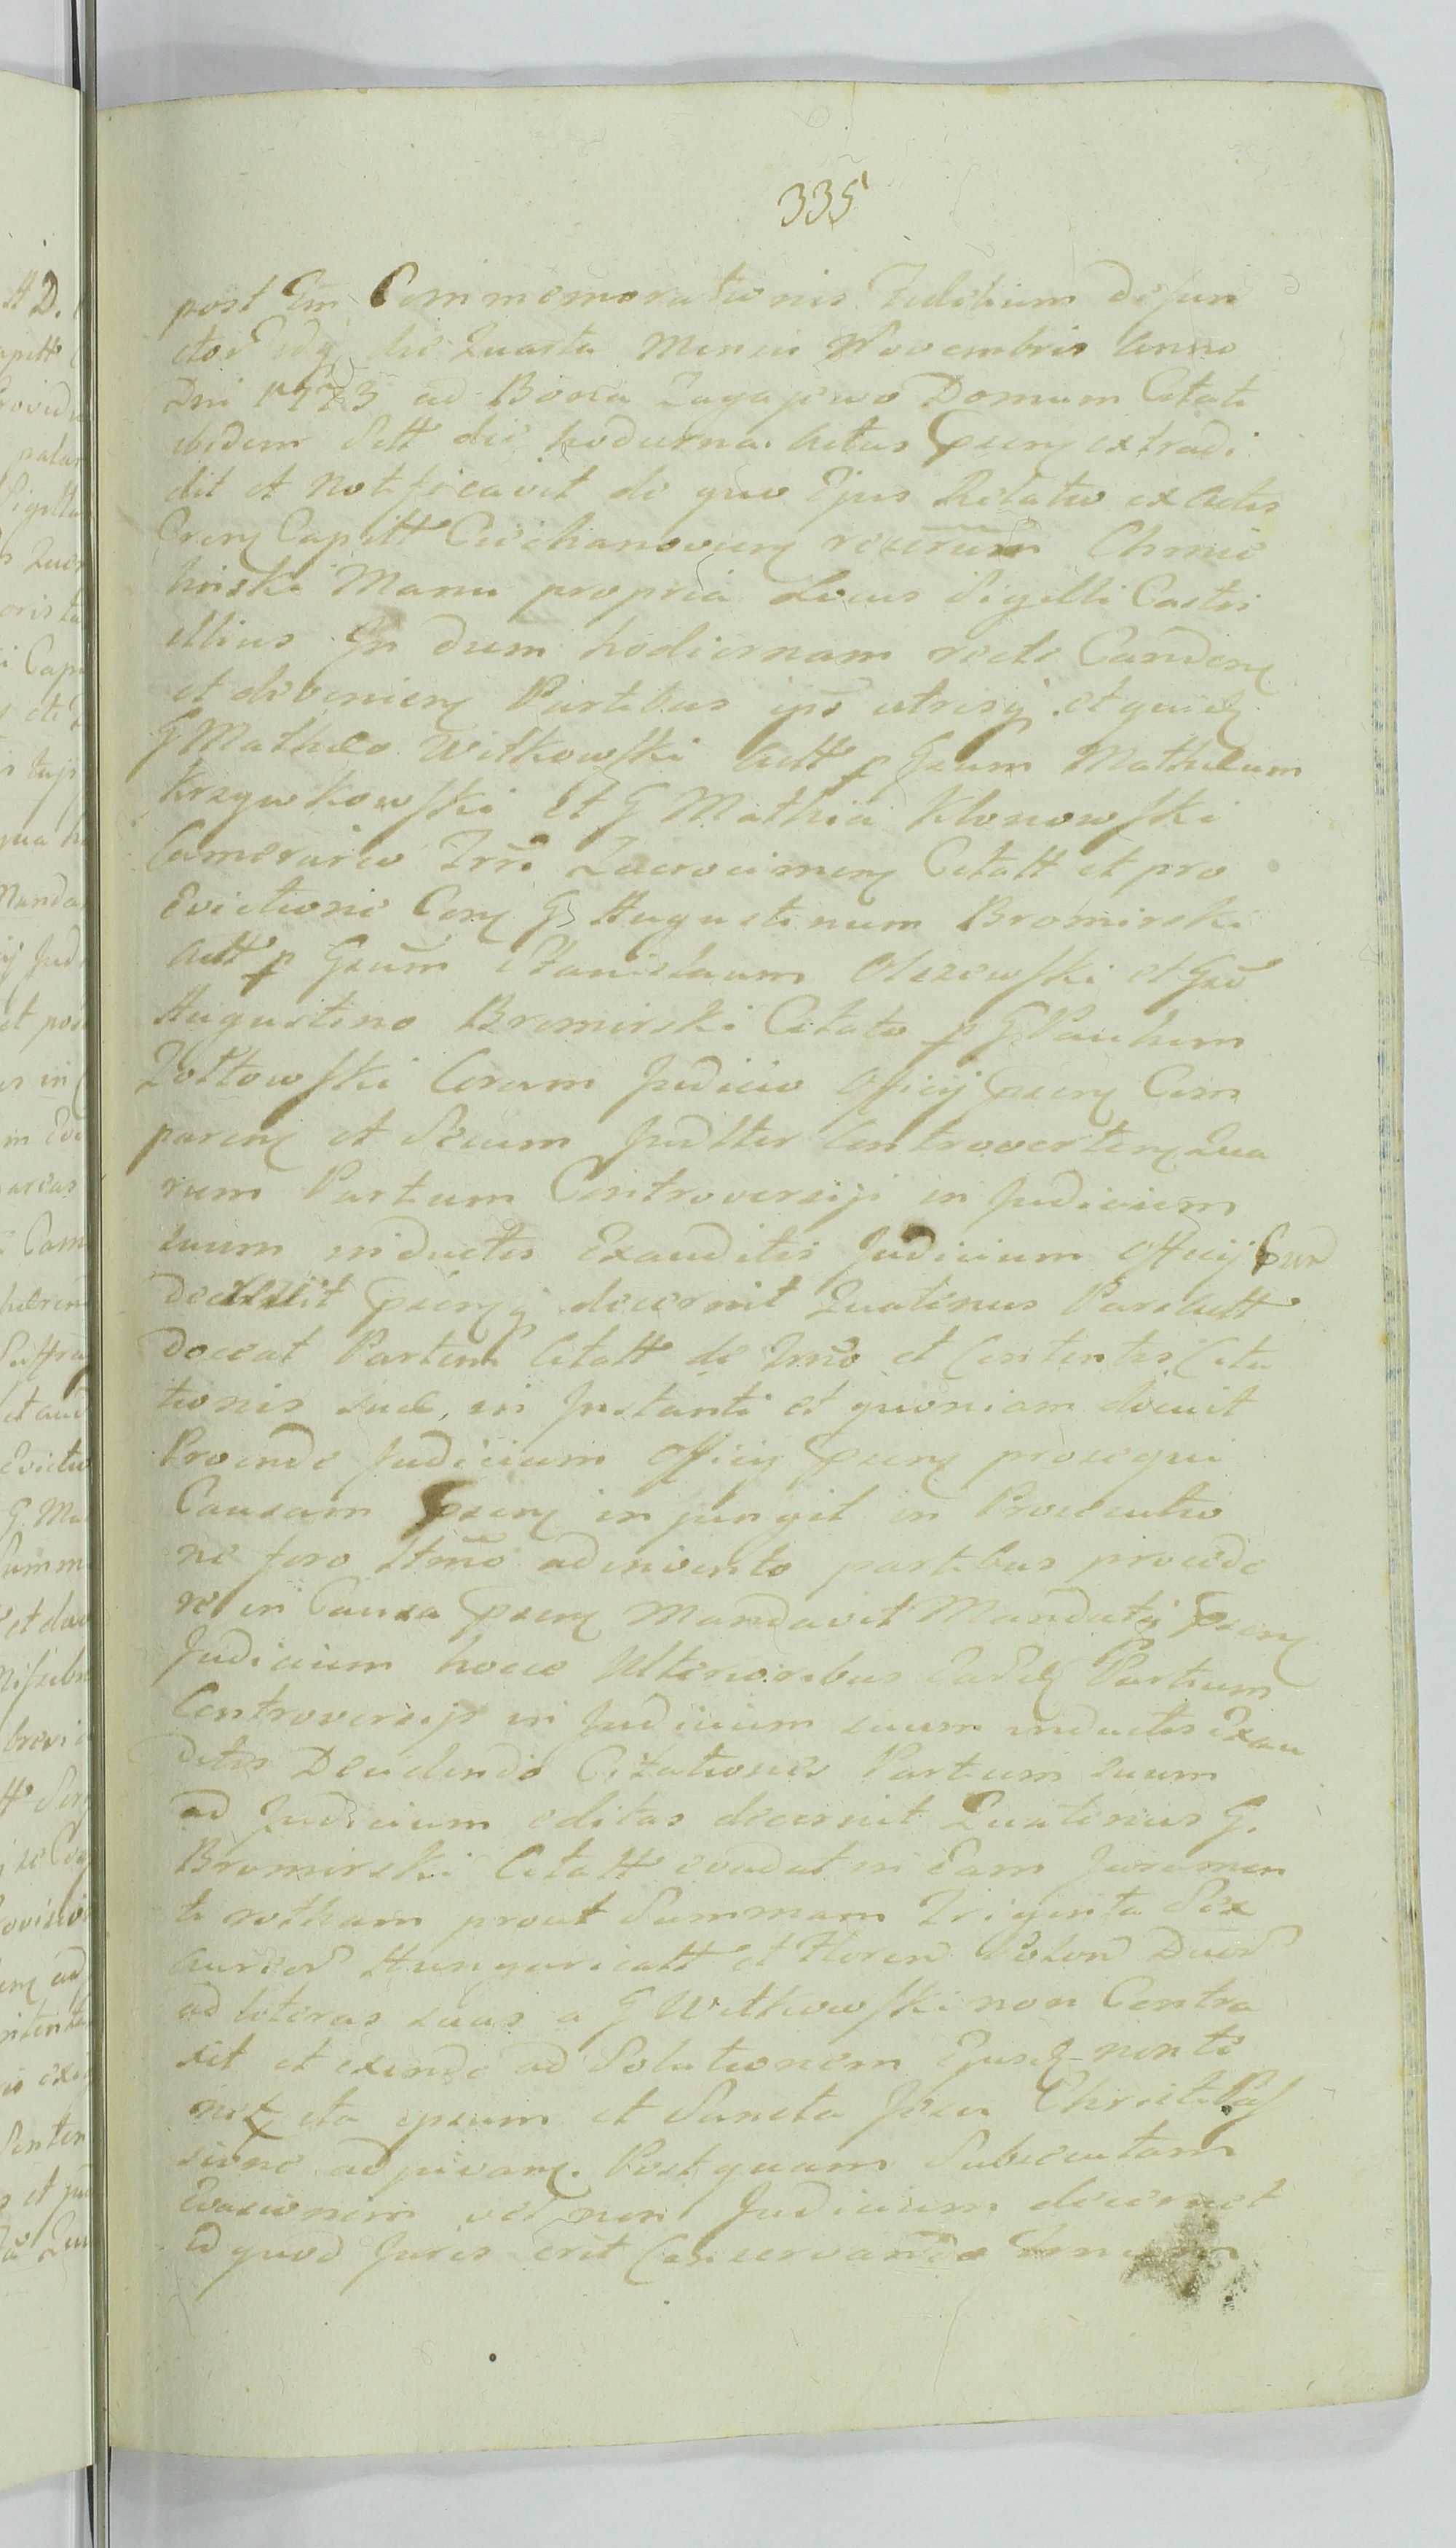 335
post Fm̃ Commemorationis Fidelium Defun
ctor̃ idq̨ die Quarta Mensis Novembris Anno
Dni 1773 ad Bona Zagajewo Domum Citati
ibidem Sitt die hodierna Actus Pñsen extradi
dit et notificavit de quo Ejus Relatio ex Actis
Pñsen Capitt Ciechanovien rescriũm Chmie
linski Manu propria Locus Sigilli Castri
illius In diem hodiernam recte Caden
et devenien Partibus ips̃ utrisq̨ et quid
G Matheo Witkowski Actt p Gsum Matheum
Krzywkowski et G Mathia Klonowski
Camerario Trr̃i Zacrocimen Citatt et pro
Evictione Con G Augustinum Bromirski
Actt p Gsum̃ Stanislaum Olszewski et Gso
Augustino Bromirski Citato p G Paulum
Zołtowski Coram Judicio Officij Pñsen Com
paren et Secum Judlter Controverten Qua
rum Partium Controversijs in Judicium
suum inductis Exauditis Judicium Officij
decrevit Pñsenq̨ decernit Quatenus Pars Actt
doceat Partem Citatt de Trm̃o et Contentis Cita
tionis suae, in Instanti et quoniam docuit
Proinde Judicium Officij Pñsen prosequi
Causam Pñsen injungit in Prosecutio
ne fero Itm̃o adinvento partibus procede
re in Causa Pñsen Mandavit Mandatq̨ Pñsen
Judicium hocce Ulterioribus Eard Partium
Controversijs in Judicium suum inductis Exau
ditis Decidendo Citationes Partium suum
ad Judicium editas decernit Quatenus G.
Bromirski Citatt evadat in Eam Juramen
ti rotham prout Summam Triginta Sex
Aureor̃ Hungaricatt et Floren̄ Polon̄
ad literas suas a G Witkowski non Contra
xit et exinde ad Solutionem Ejusd non te
netr̃ ita ipsum et Sancta Jesu Christi Pas
sione adjuvan. Postquam Subsecutam
Evasionem vel non Judicium decernet
id quod Juris erit Conservando